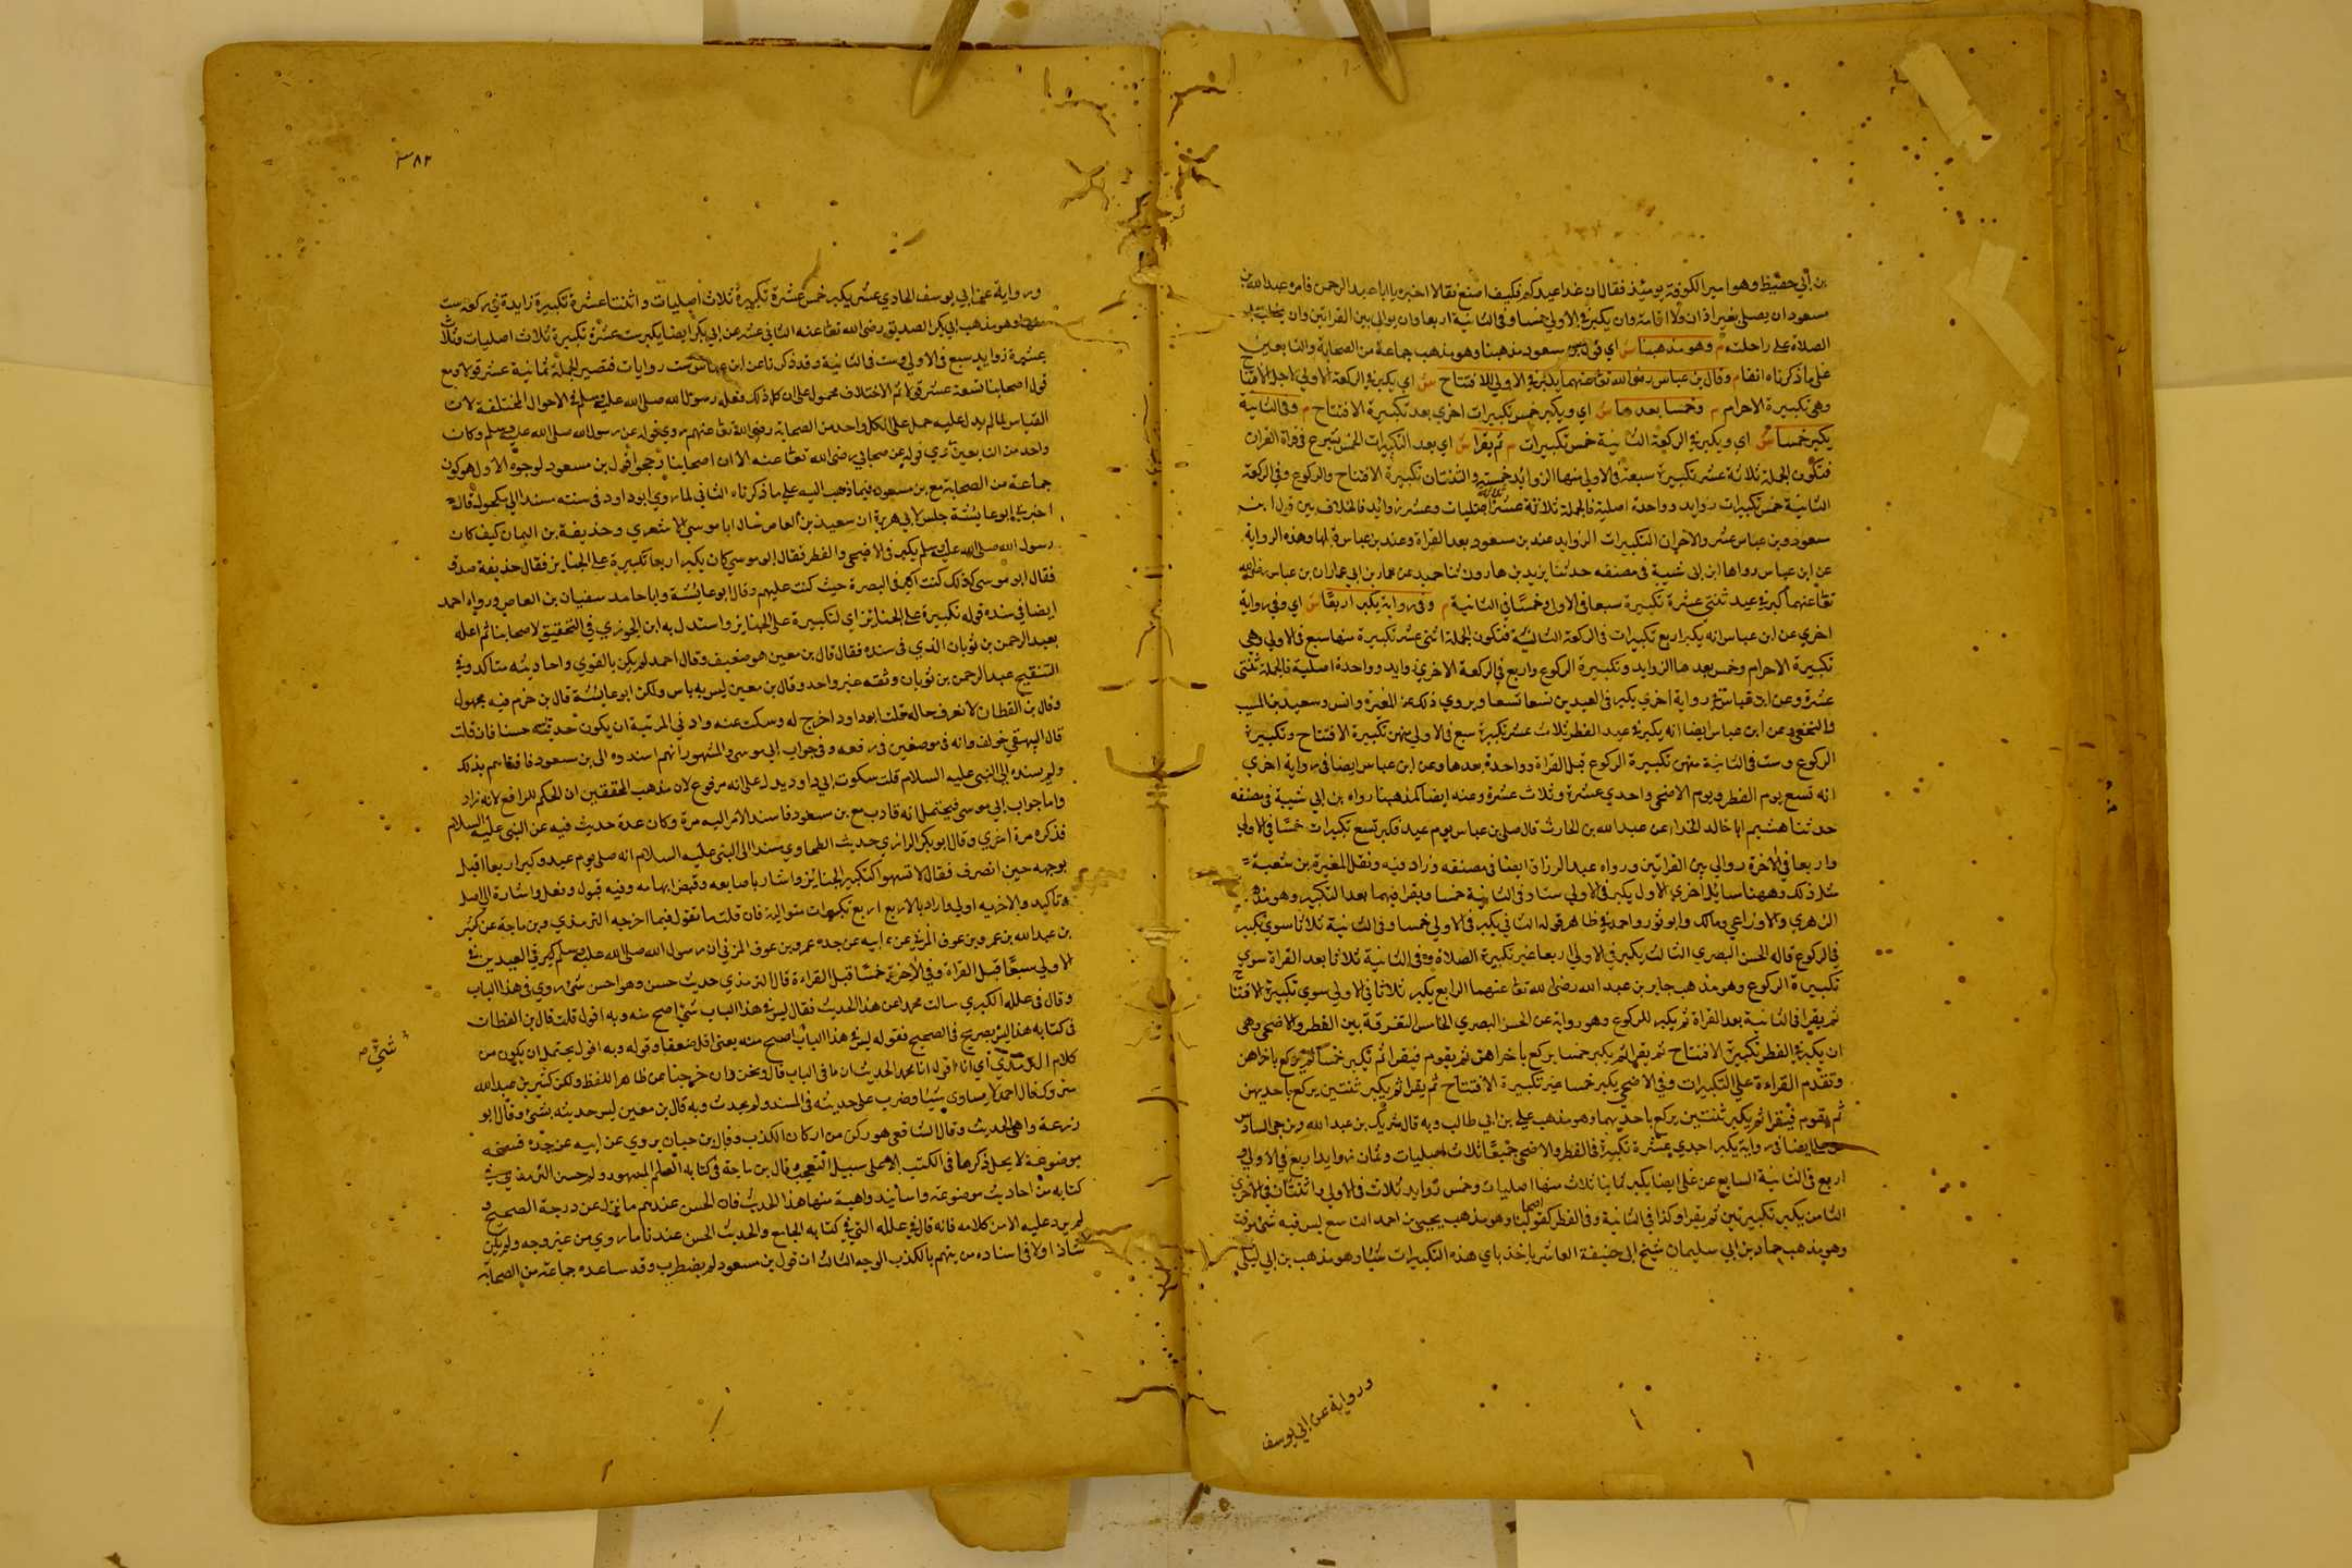 بن أبي حفيظ وهو امير الكوفة يومئذ فقال ان غدا عيدكم فكيف اصنع فقالا اخبره يا ابا عبد الرحمن فامره عبد الله بن
مسعود ان يصلي بغير اذان ولا اقامة وان يكبر في الاولي خمسا وفي الثانية اربعا وان يوالي بين القراتين وان يخطب بعد
الصلاة علي راحلته م وهو مذهبنا ش اي قول بن مسعود مذهبنا وهو مذهب جماعة من الصحابة والتابعين
علي ما ذكرناه انفا م وقال بن عباس رضي الله تعا عنهما يكبر في الاولي للافتتاح ش اي يكبر في الركعة الاولي لاجل الافتتاح
وهي تكبيرة الاحرام م وخمسا بعدها ش اي ويكبر خمس تكبيرات اخري بعد تكبيرة الافتتاح م وفي الثانية
يكبر خمسا ش اي ويكبر في الركعة الثانية خمس تكبيرات م ثم يقرا ش اي بعد التكبيرات الخمس يشرع في قراة القران
فتكون الجملة ثلاثة عشر تكبيرة سبعة في الاولي منها الزوايد خمسة والثنتان تكبيرة الافتتاح والركوع وفي الركعة
الثانية خمس تكبيرات زوايد وواحدة اصلية فالجملة ثلاثة عشر ثلاثة اصليات وعشر زوائد فالخلاف بين قول ابن
مسعود وبن عباس عشر والاخر ان التكبيرات الزوايد عند بن مسعود بعد القراة وعند بن عباس قبلها وهذه الرواية
عن ابن عباس رواها ابن ابي شيبة في مصنفه حدثنا يزيد بن هارون ثنا حميد عن عمار بن ابي عمار ان بن عباس رضي الله
تعا عنهما كبر في عيد ثنتي عشرة تكبيرة سبعا في الاولي وخمسا في الثانية م وفي رواية يكبر اربعا ش اي وفي رواية
اخري عن ابن عباس انه يكبر اربع تكبيرات في الركعة الثانية فتكون الجملة اثني عشر تكبيرة منها سبع في الاولي وهي
تكبيرة الاحرام وخمس بعدها الزوايد وتكبيرة الركوع واربع في الركعة الاخري زوايد وواحدة اصلية فالجملة ثنتي
عشرة وعن ابن عباس في رواية اخري يكبر في العيدين تسعا تسعا ويروي ذلك عن المغيرة وانس وسعيد بن المسيب
والنخعي وعن ابن عباس ايضا انه يكبر في عيد الفطر ثلاث عشر تكبيرة سبع في الاولي منهن تكبيرة الافتتاح وتكبيرة
الركوع وست في الثانية منهن تكبيرة الركوع قبل القراة وواحدة بعدها وعن ابن عباس ايضا في رواية اخري
انه تسع يوم الفطر ويوم الاضحي واحدي عشرة وثلاث عشرة وعنه ايضا كمذهبنا رواه بن ابي شيبة في مصنفه
حدثنا هشيم انا خالد الحذاء عن عبد الله بن الحارث قال صلي بن عباس يوم عيد فكبر تسع تكبيرات خمسا في الاولي
واربعا في الاخرة ووالي بين القراتين ورواه عبد الرزاق ايضا في مصنفه وزاد فيه وفعل المغيرة بن شعبة
مثل ذلك وههنا مسائل اخري الاول يكبر في الاولي ستا وفي الثانية خمسا ويقرا فيهما بعد التكبير وهو مذهب
الزهري والاوزاعي ومالك وابو ثور واحمد في ظاهر قوله الثاني يكبر في الاولي خمسا وفي الثانية ثلاثا سوي تكبير
في الركوع قاله الحسن البصري الثالث يكبر في الاولي اربعا غير تكبيرة الصلاة وفي الثانية ثلاثا بعد القراة سوي
تكبيرة الركوع وهو مذهب جابر بن عبد الله رضي الله تعا عنهما الرابع يكبر ثلاثا في الاولي سوي تكبيرة الافتتاح
ثم يقرا في الثانية بعد القراة ثم يكبر للركوع وهو رواية عن الحسن البصري الخامس التفرقة بين الفطر والاضحي وهي
ان يكبر في الفطر تكبيرة الافتتاح ثم يقرا ثم يكبر خمسا يركع باخراهن ثم يقوم فيقرا ثم يكبر خمسا ثم يركع باخراهن
وتقدم القراءة علي التكبيرات وفي الاضحي يكبر خمسا غير تكبيرة الافتتاح ثم يقرا ثم يكبر ثنتين يركع باحديهن
ثم يقوم فيقرا ثم يكبر ثنتين يركع باحديهما وهو مذهب علي بن ابي طالب وبه قال شريك بن عبد الله وبن حي السادس
ايضا في رواية يكبر احدي عشرة تكبيرة في الفطر والاضحي جميعا ثلاث اصليات وثمان زوايد اربع في الاولي و
اربع في الثانية السابع عن علي ايضا يكبر ثمانيا ثلاث منها اصليات وخمس زوايد ثلاث في الاولي واثنتان في الاخري
الثامن يكبر تكبيرتين ثم يقرا وكذا في الثانية وفي الفطر كقول اصحابنا وهو مذهب يحيي بن احمد التاسع ليس فيه شئ موقت
وهو مذهب حماد بن ابي سليمان شيخ ابي حنيفة العاشر ياخذ باي هذه التكبيرات شيا وهو مذهب بن ابي ليلي
ورواية عن ابي يوسف
٣٨٢
ورواية عن ابي يوسف الحادي عشر يكبر خمس عشرة تكبيرة ثلاث اصليات واثنتا عشرة تكبيرة زايدة في ركعة ست
منها وهو مذهب ابي بكر الصديق رضي الله تعا عنه الثاني عشر عن ابي بكر ايضا يكبر ست عشرة تكبيرة ثلاث اصليات وثلاث
عشرة زوايد سبع في الاولي وست في الثانية وقد ذكرنا عن ابن عباس ست روايات فتصير الجملة ثمانية عشر قولا ومع
قول اصحابنا تسعة عشر قولا ثم الاختلاف محمول علي ان كل ذلك فعله رسول الله صلي الله عليه وسلم في الاحوال المختلفة لان
القياس لما لم يدل عليه حمل علي ان كل واحد من الصحابة رضي الله تعا عنهم روي قوله عن رسول الله صلي الله عليه وسلم وكان
واحد من التابعين روي قوله عن صحابي رضي الله تعا عنه الا ان اصحابنا رجحوا قول بن مسعود لوجوه الاول هو كون
جماعة من الصحابة مع بن مسعود فيما ذهب اليه علي ما ذكرناه الثاني لما روي ابو داود في سننه مسندا الي مكحول قال
اخبرني ابو عايشة جليس لابي هريرة ان سعيد بن العاص سال ابا موسي الاشعري وحذيفة بن اليمان كيف كان
رسول الله صلي الله عليه وسلم يكبر في الاضحي والفطر فقال ابو موسي كان يكبر اربعا تكبيرة علي الجنايز فقال حذيفة صدق
فقال ابو موسي كذلك كنت اكبر في البصرة حيث كنت عليهم وقال ابو عايشة وانا حامد سفيان بن العاص ورواه احمد
ايضا في مسنده قوله تكبيرة علي الجنائز اي كتكبيرة علي الجنايز واستدل به ابن الجوزي في التحقيق لاصحابنا ثم اعله
بعبد الرحمن بن ثوبان الذي في سنده فقال قال بن معين هو ضعيف وقال احمد لم يكن بالقوي واحاديثه مناكير وفي
التنقيح عبد الرحمن بن ثوبان وثقه غير واحد وقال بن معين ليس به باس ولكن ابو عايشة قال بن حزم فيه مجهول
وقال بن القطان لا نعرف حاله قلنا ابو داود اخرج له وسكت عنه وادني المرتبة ان يكون حديثه حسنا فان قلت
قال البيهقي خولف راويه في موضعين في رفعه وفي جواب ابي موسي والمشهور انهم اسندوه الي بن مسعود فافتاهم بذلك
ولم يسنده الي النبي عليه السلام قلت سكوت ابي داود يدل علي انه مرفوع لان مذهب المحققين ان الحكم للرافع لانه زاد
واما جواب ابي موسي فيحتمل انه تادب مع بن مسعود فاسند الامر اليه مرة وكان عنده حديث فيه عن النبي عليه السلام
فذكره مرة اخري وقال ابو بكر الرازي حديث الطحاوي مسندا الي النبي عليه السلام انه صلي يوم عيد وكبر اربعا اقبل
بوجهه حين انصرف فقال لا تسهوا كتكبير الجنائز واشار باصابعه وقبض ابهامه وفيه قول وفعل واشارة الي اصل
وتاكيد والاخذ به اولي واراد بالاربع اربع تكبيرات متوالية فان قلت ما تقول فيما اخرجه الترمذي وبن ماجة عن كثير
بن عبد الله بن عمرو بن عوف المزني عن ابيه عن جده عمرو بن عوف المزني ان رسول الله صلي الله عليه وسلم كبر في العيدين في
الاولي سبعا قبل القراة وفي الاخرة خمسا قبل القراءة قال الترمذي حديث حسن وهو احسن شئ روي في هذا الباب
وقال في علله الكبري سالت محمدا عن هذا الحديث فقال ليس في هذا الباب شئ اصح منه وبه اقول قلت قال بن القطان
في كتابه هذا ليس بصريح في الصحيح فقوله ليس في هذا الباب اصح منه يعني اقل ضعفا وقوله وبه اقول يحتمل ان يكون من
شئ صح
كلام الترمذي اي انا اقول ان هذا الحديث ان ما في الباب قال ونحن وان خرجنا عن ظاهر اللفظ ولكن كثير بن عبد الله
متروك قال احمد لا يساوي شيئا وضرب علي حديثه في المسند ولم يحدث وبه قال بن معين ليس حديثه بشئ وقال ابو
زرعة واهي الحديث وقال الشافعي هو ركن من اركان الكذب وقال بن حبان يروي عن ابيه عن جده نسخة
موضوعة لا يحل ذكرها في الكتب الا علي سبيل التعجب وقال بن ماجة في كتابه العلم المشهور ولم حسن الترمذي في
كتابه من احاديث موضوعة واسانيد واهية منها هذا الحديث فان الحسن عندهم ما نزل عن درجة الصحيح و
لم يرد عليه الا من كلامه فانه قال في علله التي في كتابه الجامع والحديث الحسن عندنا ما روي من غير وجه ولم يكن
شاذا ولا في اسناده من يتهم بالكذب الوجه الثالث ان قول بن مسعود لم يضطرب وقد ساعده جماعة من الصحابة